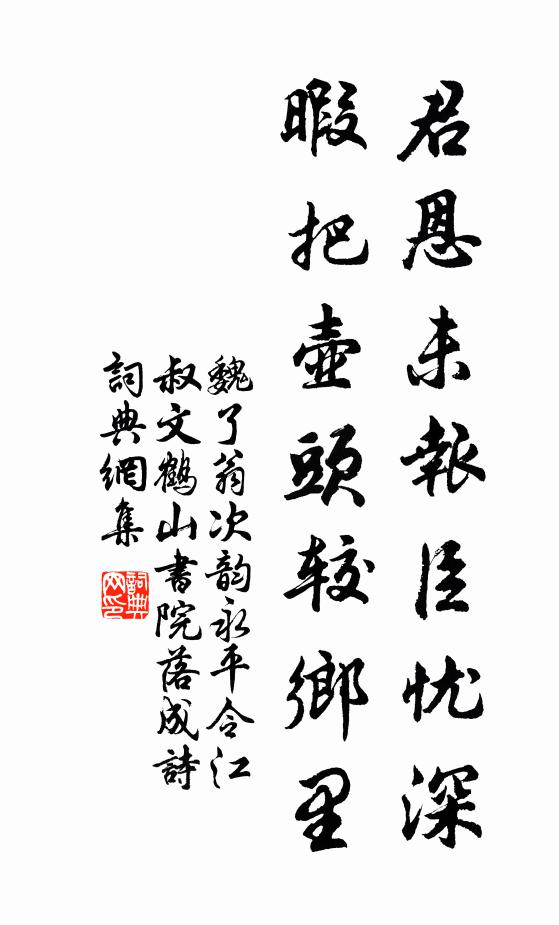 君恩未報臣忧深
暇把壺頭较鄉里
魏了翁次韵永平令江
叔文鶴山書院落成詩
詞典網集
詞典网印